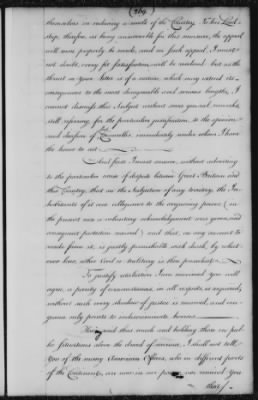 (269)
themselves in reducing a revolt of the Country. To His Lord-
ship, therefore, as being unanswerable for this measure, the appeal
will more properly be made, and on such appeal, I must
not doubt, every fit satisfaction will be rendered: but as the
threat in your letter is of a nature, which may extend its
consequences to the most disagreeable and serious lengths, I
cannot dismiss this subject without some general remarks,
still referring, for the particular justification, to the opinion
and decision of Lord Cornwallis, immediately under whom I have
the honor to act.
And first I must answer, without adverting
to the particular cause of dispute between Great Britain
and this Country, that on the subjection of any territory, the In-
habitants of it owe allegiance to the conquering power (in
the present case a voluntary acknowledgement was given, and
consequent protection received) and that, on any account to
recede from it, is justly punishable with death, by what-
ever law, either Civil or Military is then prevalent.
To justify retaliation I am convinced you will
agree, a parity of circumstances, in all respects, is required,
without such every shadow of justice is removed, and ven-
geance only points to indiscriminate horrors.
Having said thus much
I shall not tell
You of the many American Officers, who in different parts
of the Continent, are now in our power, nor remind You
that